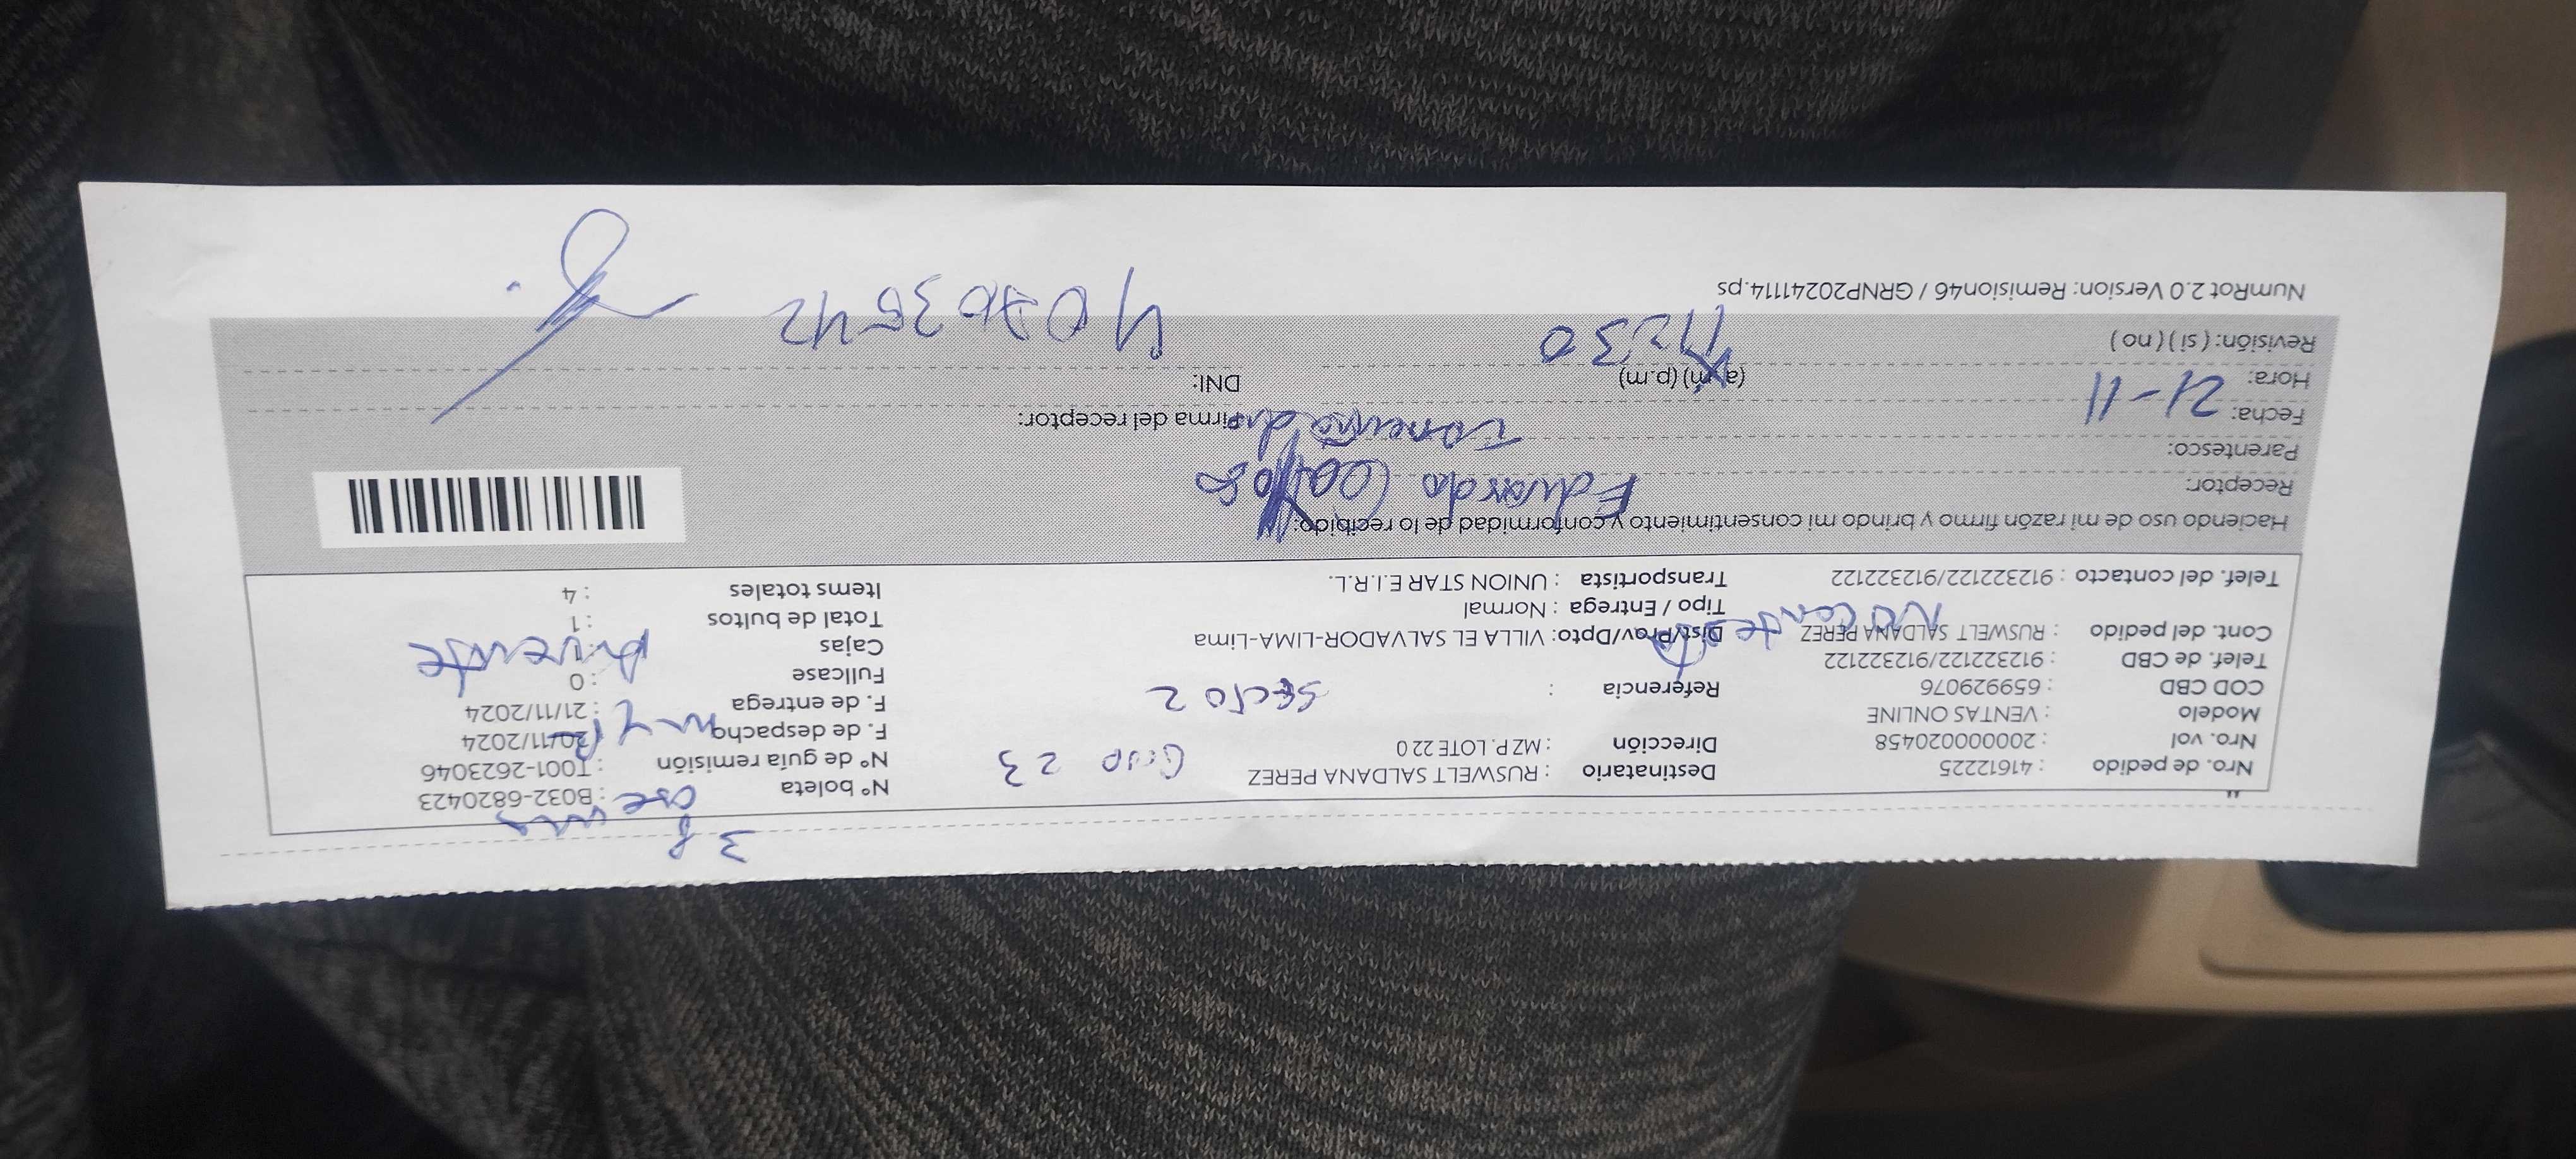 Nro. de pedido : 41612225
Nro. vol : 2000000020458
Modelo : VENTAS ONLINE
COD CBD : 659929076
Telef. de CBD : 912322122/912322122
Cont. del pedido : RUSWELT SALDANA PEREZ
Telef. del contacto : 912322122/912322122
No contesta
Destinatario : RUSWELT SALDANA PEREZ
Dirección : MZ P. LOTE 22 0
Grup 23
Referencia :
Secto 2
Dist/Prov/Dpto: VILLA EL SALVADOR-LIMA-Lima
Tipo / Entrega : Normal
Transportista : UNION STAR E.I.R.L.
3 P
N° boleta : B032-6820423
N° de guía remisión : T001-2623046
F. de despacho : 20/11/2024
F. de entrega : 21/11/2024
Fullcase : 0
Cajas : 1
Total de bultos : 1
Items totales : 4
Haciendo uso de mi razón firmo y brindo mi consentimiento y conformidad de lo recibido:
Receptor: Eduardo
Parentesco:
Fecha: 21-11
Firma del receptor:
Hora: (a.m) (p.m)
DNI:
Revisión: ( si ) ( no )
NumRot 2.0 Version: Remision46 / GRNP20241114.ps